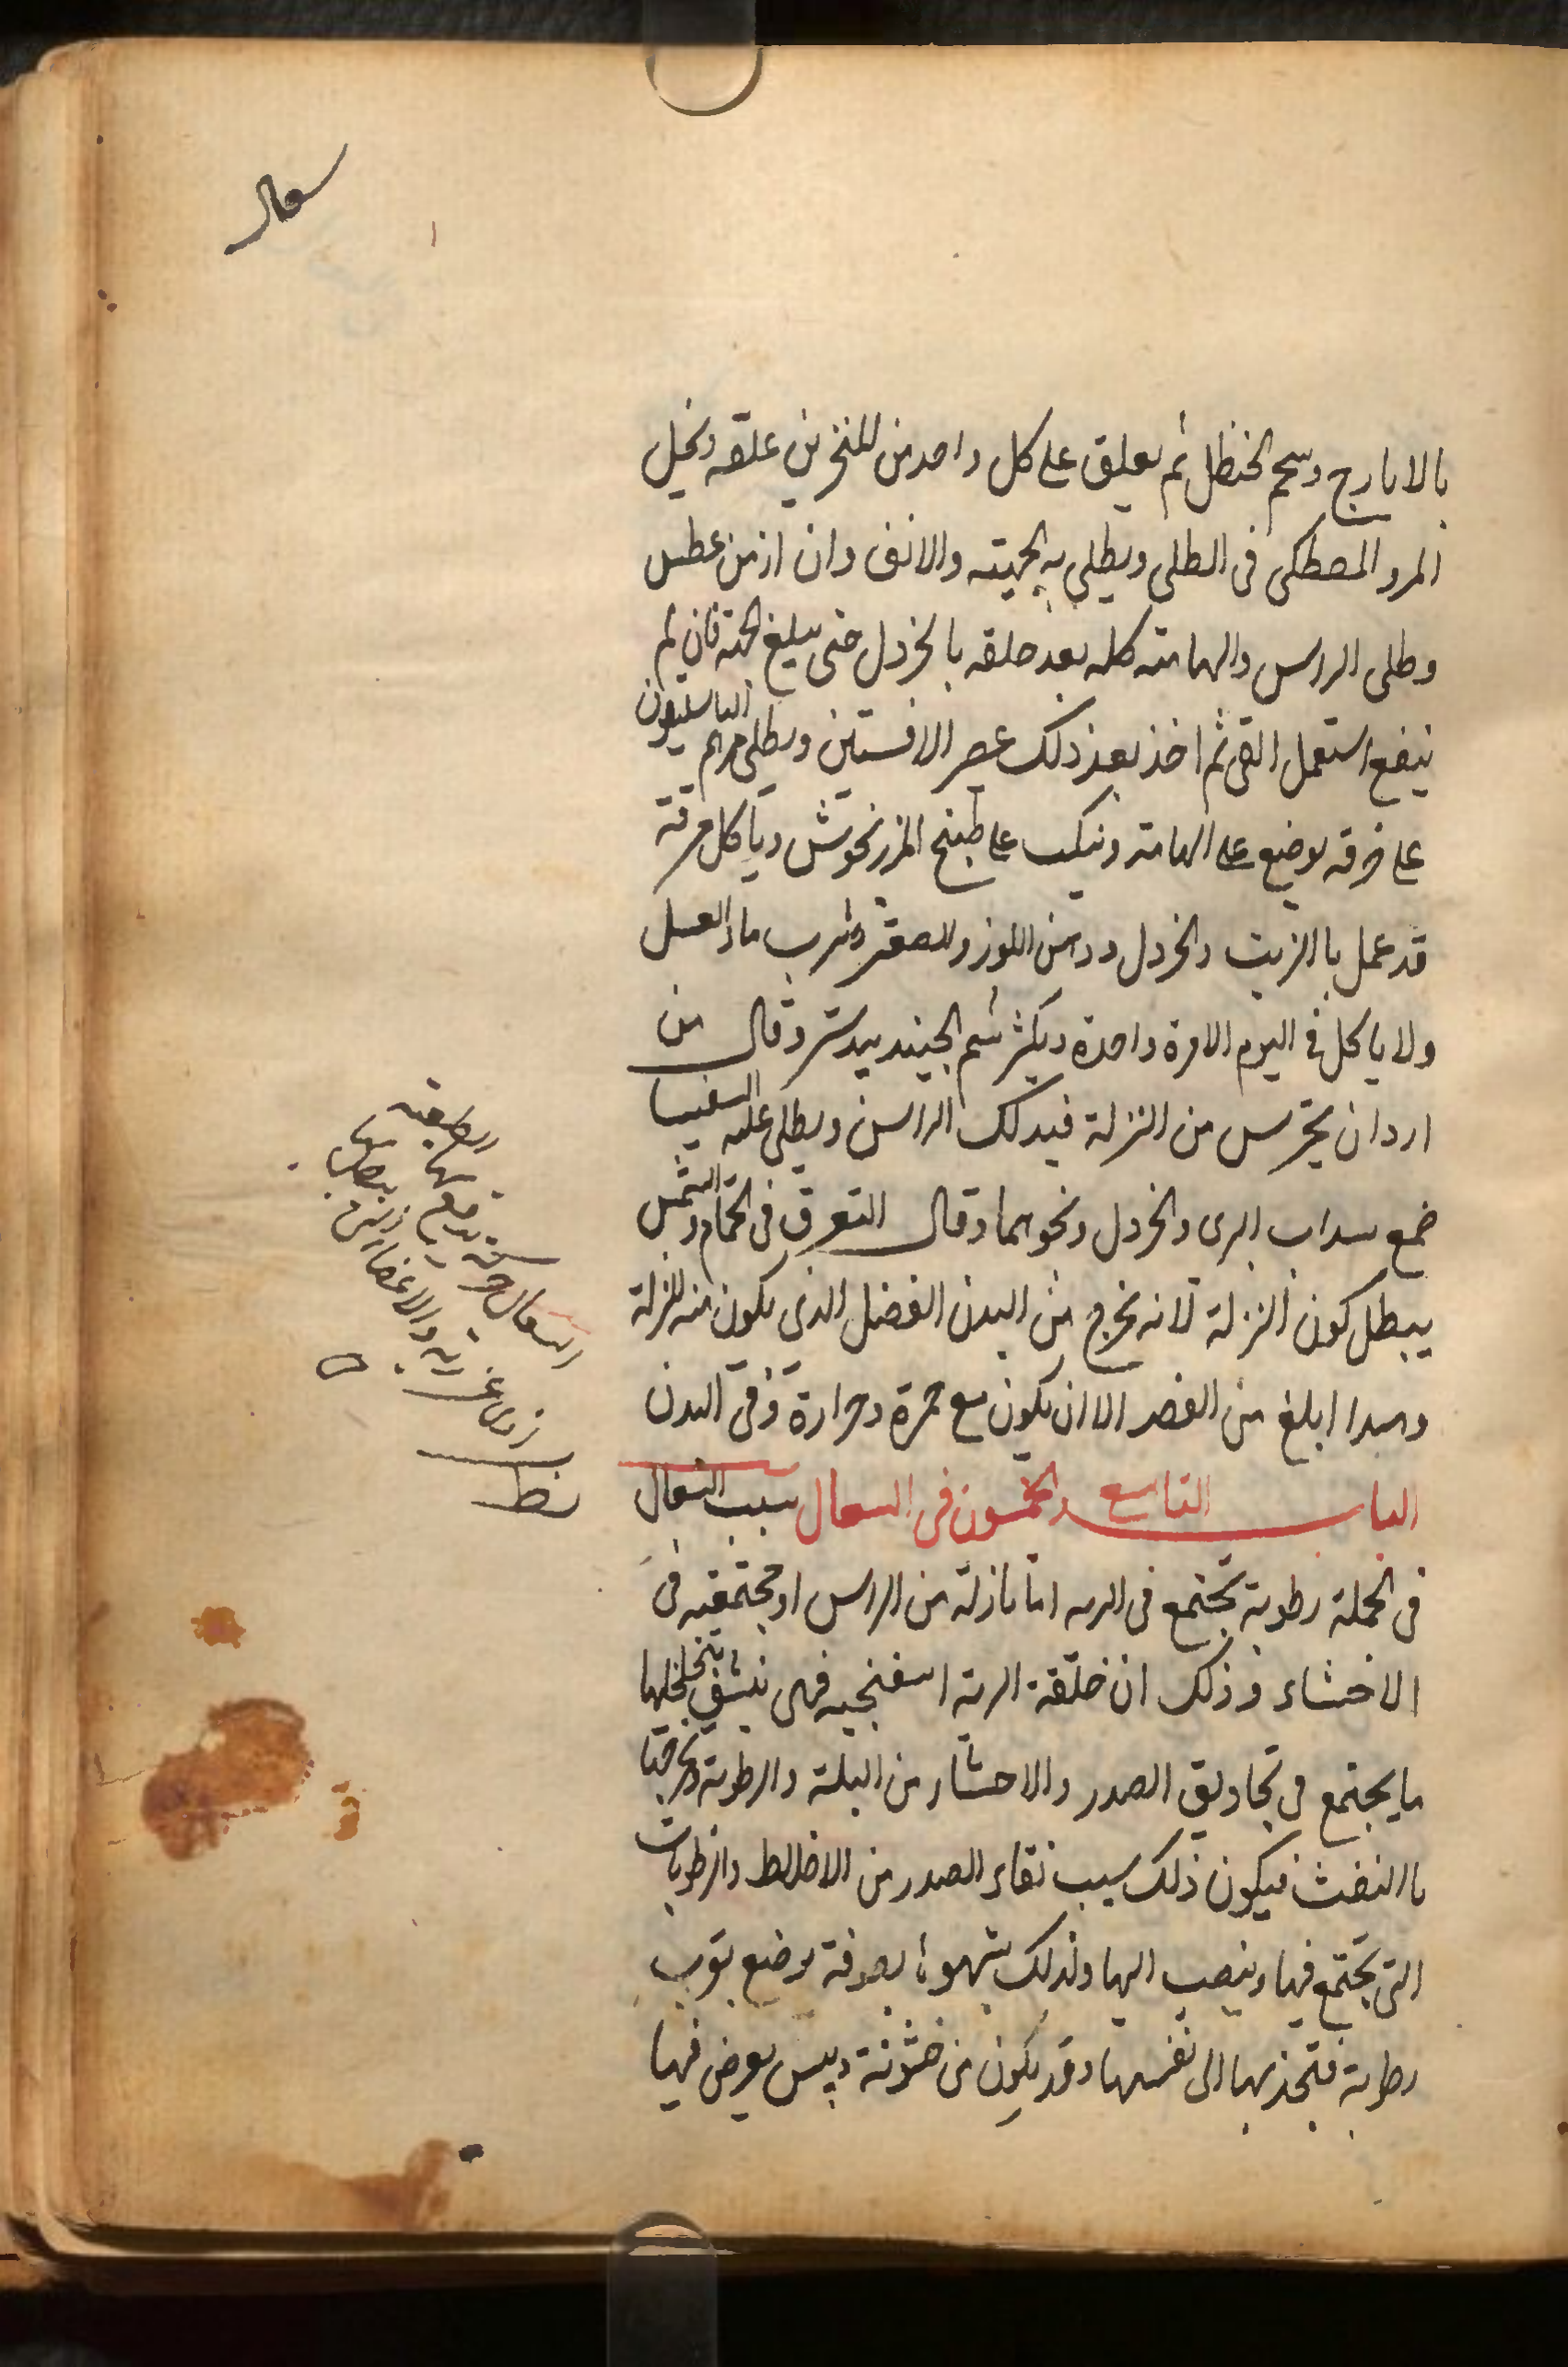 سعال
بالايارج وشحم الحنظل ثم يعلق على كل واحد من المنخرين علقه ويجعل
المر والمصطكى فى الطلى ويطلى به الجبهته والانف وان ازمن عطس
وطلى الراس والهامته كله بعد حلقه بالخردل حتى يبلغ الحته فان لم
ينفع استعمل القى ثم اخذ بعد ذلك عصر الافسنتين ويطلى مرهم الباسليقون
على خرقه يوضع على الهامته وينكب على طبيخ المرزنجوش وياكل مرقة
قد عمل باالزيت والخردل ودهن اللوز والصعتر وشرب ماء العسل
ولا ياكل فى اليوم الا مرة واحدة ويكثر شم الجيندبيدستر وقال من
اراد ان يحترس من النزلة فيدلك الراس ويطلى عليه الثفسيا
مع سداب البرى والخردل ونحوهما وقال التعرق فى الحمام والشمس
يبطل كون النزلة لانه يخرج من البدن الفضل الذى يكون منه النزلة
وهذا ابلغ من الفصد الا ان يكون مع حمرة وحرارة وفى البدن
الباب التاسع والخمسون فى السعال سبب السعال
فى الجملة رطوبة تجتمع فى الريه اما نازلة من الراس او مجتمعيه فى
الاحشاء وذلك ان خلقة الرية اسفنجيه فهى ينشف بتخلخلها
ما يجتمع فى تجاويف الصدر والاحشاء من البلة والرطوبة ويخرجها
باالنفث فيكون ذلك سبب نقاء الصدر من الاخلاط والرطوبات
التى تجتمع فيها وينصب اليها ولذلك شبهوها بصوفة يوضع بقرب
رطوبة فتجذبها الى نفسها وقد يكون من خشونة ويبس يعرض فيها
السعال
والاعضاء